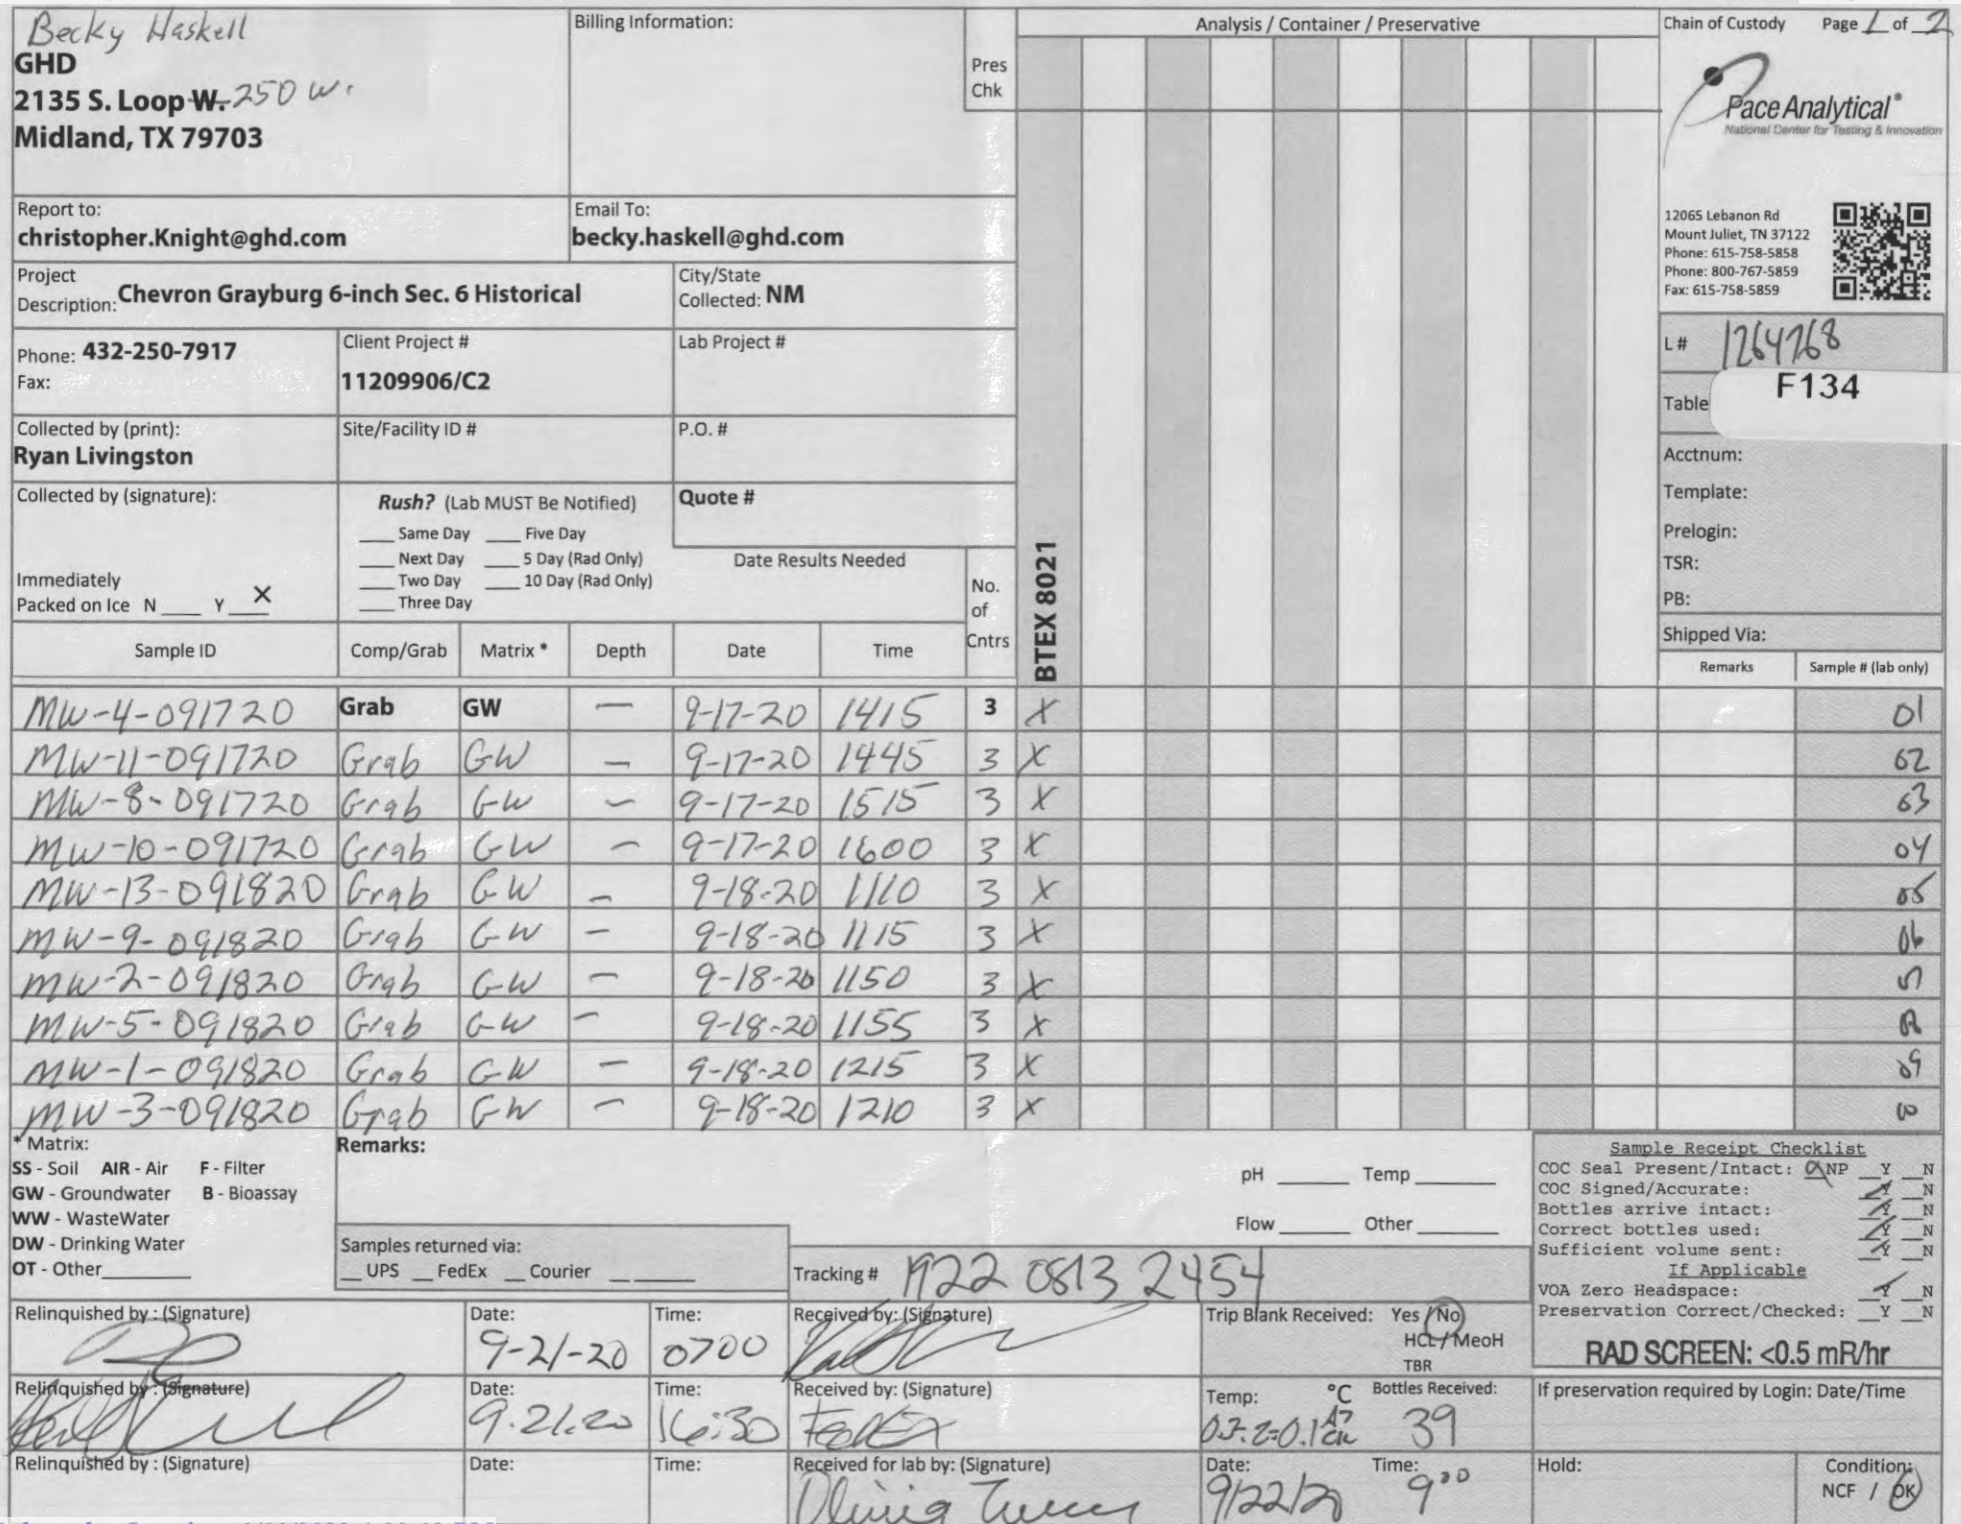 Becky Haskell
GHD
2135 S. Loop W. 250 W.
Midland, TX 79703
Billing Information:
Pres
Chk
Analysis / Container / Preservative
Chain of Custody Page 1 of 2
Pace Analytical®
National Center for Testing & Innovation
12065 Lebanon Rd
Mount Juliet, TN 37122
Phone: 615-758-5858
Phone: 800-767-5859
Fax: 615-758-5859
Report to:
christopher.Knight@ghd.com
Email To:
becky.haskell@ghd.com
Project
Description: Chevron Grayburg 6-inch Sec. 6 Historical
City/State
Collected: NM
Phone: 432-250-7917
Fax:
Client Project #
11209906/C2
Lab Project #
L# 1264768
Table
F134
Collected by (print):
Ryan Livingston
Site/Facility ID #
P.O. #
Acctnum:
Template:
Prelogin:
TSR:
PB:
Shipped Via:
Remarks Sample # (lab only)
Collected by (signature):
Immediately
Packed on Ice N ___ Y ___ X
Rush? (Lab MUST Be Notified)
___ Same Day ___ Five Day
___ Next Day ___ 5 Day (Rad Only)
___ Two Day ___ 10 Day (Rad Only)
___ Three Day
Quote #
Date Results Needed
No.
of
Cntrs
BTEX 8021
Sample ID Comp/Grab Matrix * Depth Date Time
MW-4-091720 Grab GW — 9-17-20 1415 3 X 01
MW-11-091720 Grab GW — 9-17-20 1445 3 X 02
MW-8-091720 Grab GW — 9-17-20 1515 3 X 03
MW-10-091720 Grab GW — 9-17-20 1600 3 X 04
MW-13-091820 Grab GW — 9-18-20 1110 3 X 05
MW-9-091820 Grab GW — 9-18-20 1115 3 X 06
MW-2-091820 Grab GW — 9-18-20 1150 3 X
MW-5-091820 Grab GW — 9-18-20 1155 3 X
MW-1-091820 Grab GW — 9-18-20 1215 3 X 09
MW-3-091820 Grab GW — 9-18-20 1210 3 X
* Matrix:
SS - Soil AIR - Air F - Filter
GW - Groundwater B - Bioassay
WW - WasteWater
DW - Drinking Water
OT - Other
Remarks:
pH ___ Temp ___
Flow ___ Other ___
Samples returned via:
__ UPS __ FedEx __ Courier __ ___
Tracking # 1922 0813 2454
Sample Receipt Checklist
COC Seal Present/Intact: NP _Y _N
COC Signed/Accurate: _Y _N
Bottles arrive intact: _Y _N
Correct bottles used: _Y _N
Sufficient volume sent: _Y _N
If Applicable
VOA Zero Headspace: _Y _N
Preservation Correct/Checked: _Y _N
RAD SCREEN: <0.5 mR/hr
Relinquished by : (Signature)
Date:
9-21-20
Time:
0700
Received by: (Signature)
Trip Blank Received: Yes / No
HCL / MeoH
TBR
Relinquished by : (Signature)
Date:
9.21.20
Time:
16:30
Received by: (Signature)
FedEx
Temp: °C
Bottles Received:
39
If preservation required by Login: Date/Time
Relinquished by : (Signature)
Date:
Time:
Received for lab by: (Signature)
Date:
9/22/20
Time:
9:00
Hold:
Condition:
NCF / OK